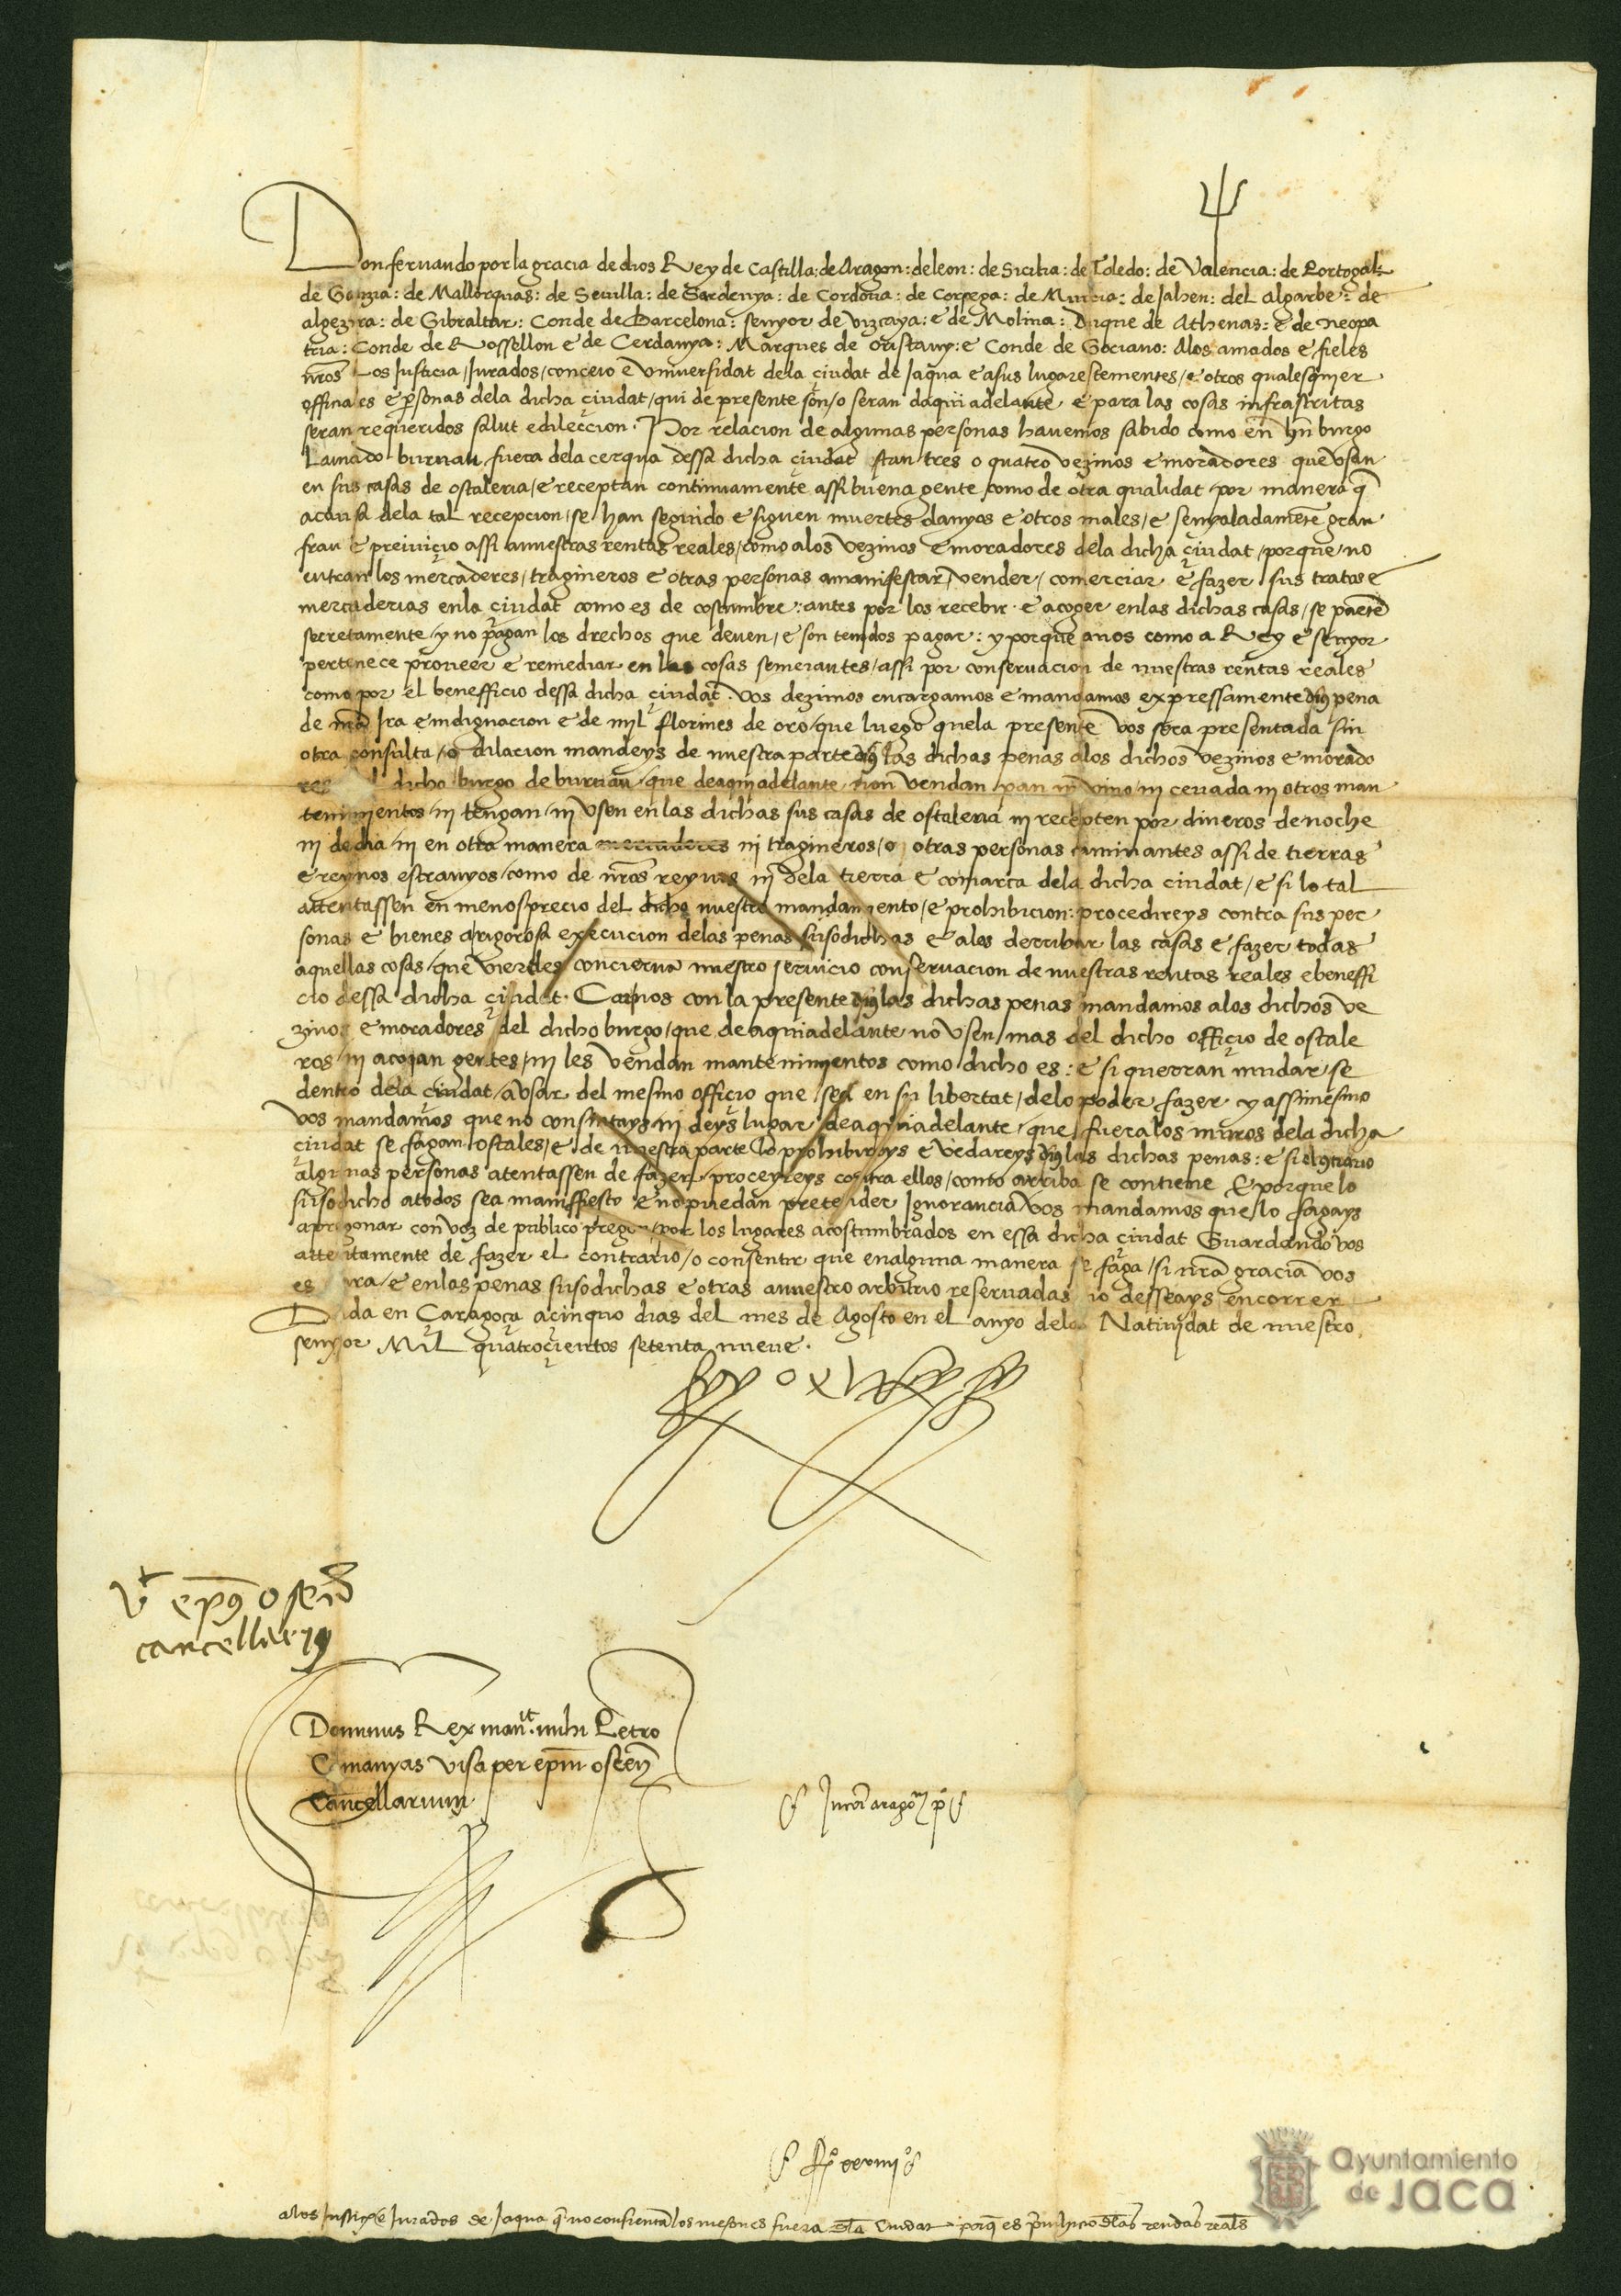 Don fernando por la gracia de dios Rey de Castilla: de Aragon: de leon: de Sicilia: de Toledo: de Valencia: de Portogal:
de Galizia: de Mallorquas: de Seuilla: de Serdenya: de Cordoua: de Corcega: de Murcia: de Jahen: del Algarbe: de
algezira: de Gibraltar: Conde de Barcelona: senyor de vizcaya: e de Molina: Duque de Athenas: e de Neopa
tria: Conde de Rossellon e de Cerdanya: Marques de Oristany: e Conde de Gociano: Alos amados e fieles
nros Los Justicia / Jurados / conceio e vniuersidat dela çiudat de Jaqua e asus lugarestenientes / e otros qualesquier
officiales e psonas dela dicha çiudat / qui de presente son / o seran daqui adelante e para las cosas infrascritas
seran requeridos salut e dileccion. Por relacion de algunas personas hauemos sabido como en hun burgo
Lamado burnau fuera dela cerqua dessa dicha çiudat stan tres o quatro vezinos e moradores que vsan
en sus casas de ostaleria / e receptan continuamente assi buena gente como de otra qualidat por manera q
acausa dela tal recepcion / se han seguido e siguen muertes danyos e otros males / e senyaladamete gran
frau e preiuiçio assi anuestras rentas reales / como alos vezinos e moradores dela dicha çiudat / porque no
entran los mercaderes / tragineros e otras personas amanifestar / vender / comerciar e fazer sus tratos e
mercaderias enla çiudat como es de costumbre: antes por los recebir e acoger enlas dichas casas / se parte
secretamente / y no pagan los drechos que deuen / e son tenidos pagar: y porque anos como a Rey e senyor
pertenece proueer e remediar en las cosas semeiantes / assi por conseruacion de nuestras rentas reales
como por el benefficio dessa dicha çiudat. vos dezimos encargamos e mandamos expressamente dius pena
de nra Ira e indignacion e de mil florines de oro / que luego quela presente vos sera presentada sin
otra consulta / o dilacion mandeys de nuestra parte dius las dichas penas alos dichos vezinos e morado
res dicho burgo de burnau / que deaquiadelante non vendan pan ni vino / ni ceuada ni otros man
tenimientos / ni tengan / ni vsen enlas dichas sus casas de ostaleria ni recepten por dineros denoche
ni de dia / ni en otra manera mercaderes ni tragineros / o otras personas caminantes assi de tierras
e reynos estranyos / como de nros reynos ni dela tierra e comarca dela dicha ciudat / e si lo tal
attentassen en menosprecio del dicho nuestro mandamiento / e prohibicion: procedireys contra sus per
sonas e bienes a rigorosa execucion delas penas susodichas e ales derribar las casas e fazer todas
aquellas cosas / que vierdes concierna nuestro seruicio conseruacion de nuestras rentas reales e beneffi
cio dessa dicha çiudat. Ca nos con la presente dius las dichas penas mandamos alos dichos ve
zinos e moradores del dicho burgo / que de aquiadelante no vsen mas del dicho offiçio de ostale
ros / ni acojan gentes / ni les vendan mantenimientos como dicho es: e si querran mudar se
dentro dela ciudat / a vsar del mesmo officio que sea en su libertat / delo poder fazer y assimesmo
vos mandamos que no consintays ni deys lugar deaquiadelante que fuera los muros dela dicha
çiudat se fagan ostales / e de nuestra parte lo prohibireys e vedareys dius las dichas penas: e si el contrario
algunas personas atentassen de fazer / proceyreys contra ellos / como arriba se contiene E porque lo
susodicho atodos sea maniffiesto e no puedan pretender Ignorancia vos mandamos que lo fagays
apregonar con voz de publico pregon / por los lugares acostumbrados en essa dicha çiudat Guardando vos
attentamente de fazer el contrario / o consentir que enalguna manera se faga / si nra gracia vos
es cara / e enlas penas susodichas e otras anuestro arbitrio reseruadas no desseays encorrer
Dada en Caragoça acinquo dias del mes de Agosto en el anyo dela Natiuidat de nuestro
senyor Mil quatroçientos setenta nueue.
Vt eps oscen
cancellarius
Dominus Rex mant. mihi Petro
Camanyas visa per epm oscen
Cancellarium
In com aragon p
alos Justiçia e Jurados de Jaqua q no consientan los mesones fuera dla Ciudat porq es p iuhicio dlas rendas reals
Ayuntamiento
de Jaca